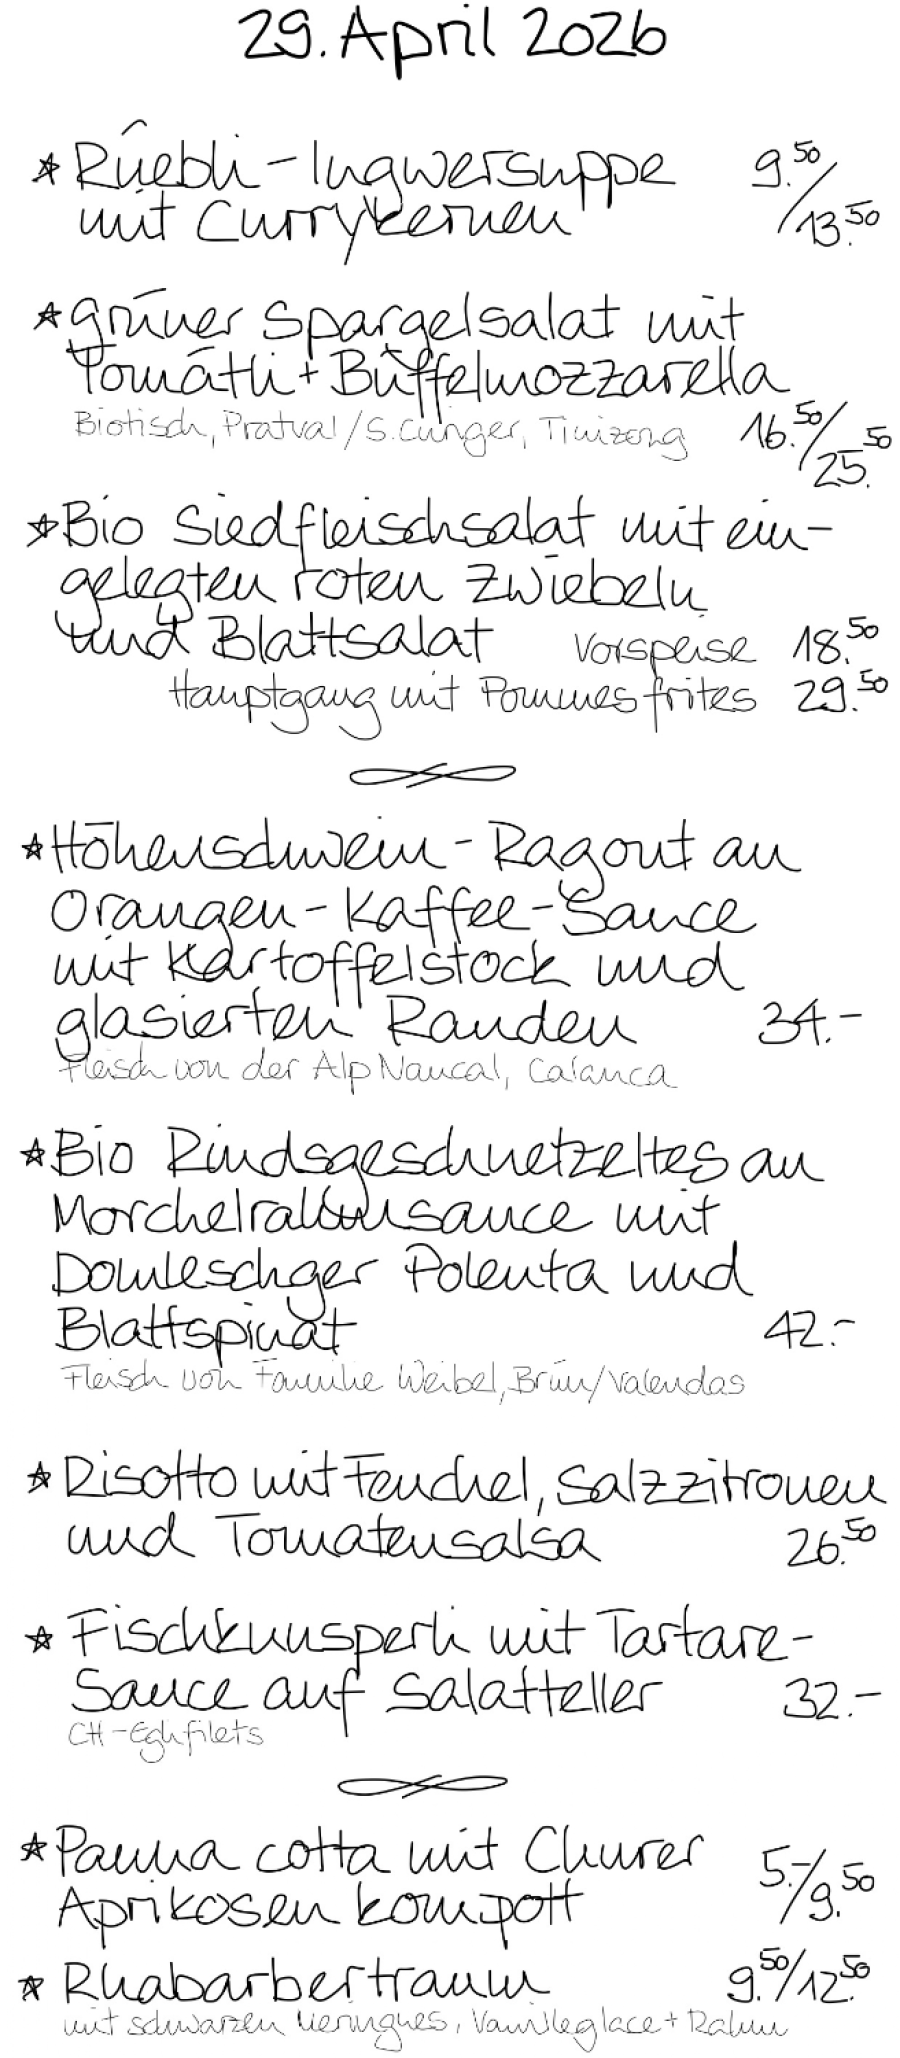 29. April 2026
* Rüebli-Ingwersuppe 9.50/
mit Currykernen 13.50
* grüner Spargelsalat mit
Tomätli + Büffelmozzarella
Biotisch, Pratval / S. Cunger, Tinizong 16.50/
25.50
* Bio Siedfleischsalat mit ein-
gelegten roten Zwiebeln
und Blattsalat Vorspeise 18.50
Hauptgang mit Pommes frites 29.50
* Höhenschwein-Ragout an
Orangen-Kaffee-Sauce
mit Kartoffelstock und
glasierten Randen 34.-
Fleisch von der Alp Naucal, Calanca
* Bio Rindsgeschnetzeltes an
Morchelrahmsauce mit
Domleschger Polenta und
Blattspinat 42.-
Fleisch von Familie Weibel, Brün/Valendas
* Risotto mit Fenchel, Salzzitronen
und Tomatensalsa 26.50
* Fischknusperli mit Tartare-
Sauce auf Salatteller 32.-
CH-Eglifilets
* Panna cotta mit Churer 5.-/
Aprikosenkompott 9.50
* Rhabarbertraum 9.50/12.50
mit schwarzen Meringues, Vanilleglace + Rahm